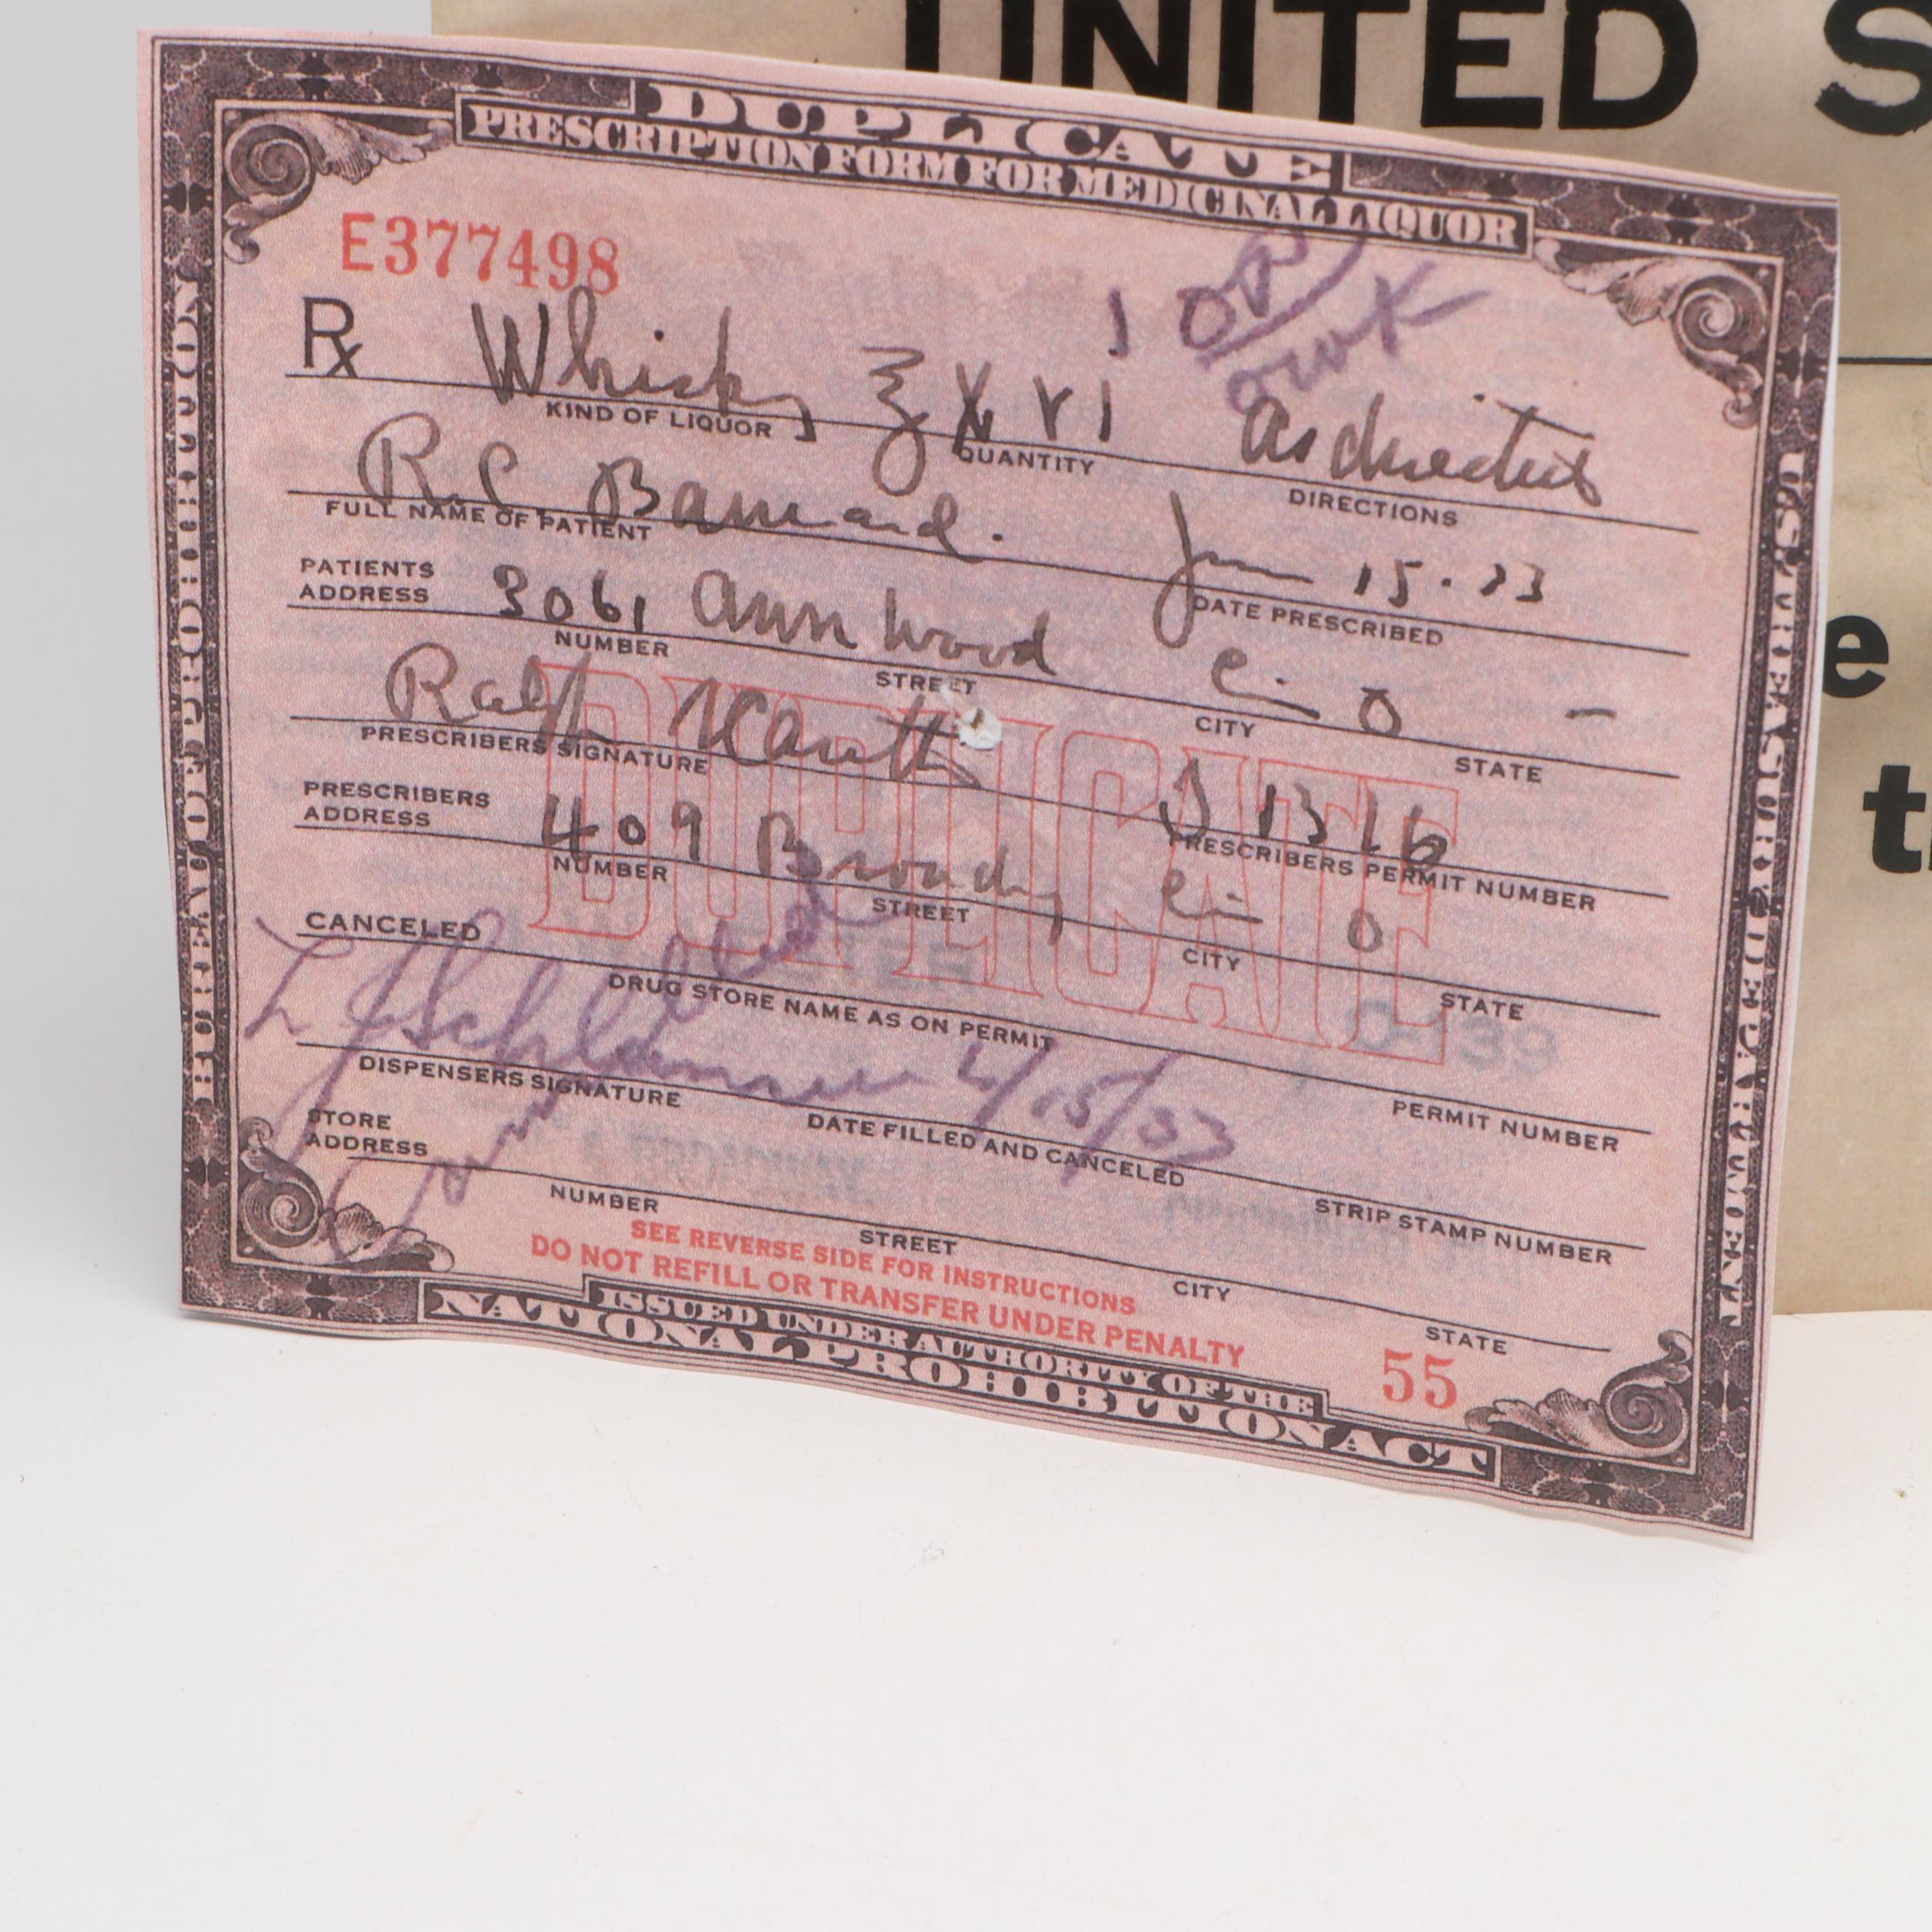 UNITED S
e
t
DUPLICATE
PRESCRIPTION FORM FOR MEDICINAL LIQUOR
BUREAU OF PROHIBITION
U.S. TREASURY DEPARTMENT
E377498
Rx Whisky ℥ XVI As directed
KIND OF LIQUOR QUANTITY DIRECTIONS
R.C. Barnard. 15.33
FULL NAME OF PATIENT DATE PRESCRIBED
PATIENTS ADDRESS 3061 Annwood Cin O
NUMBER STREET CITY STATE
Ralph
PRESCRIBERS SIGNATURE PRESCRIBERS PERMIT NUMBER
PRESCRIBERS ADDRESS 409 Broadway Cin O
NUMBER STREET CITY STATE
DUPLICATE
CANCELED
DRUG STORE NAME AS ON PERMIT PERMIT NUMBER
6/15/33
DISPENSERS SIGNATURE DATE FILLED AND CANCELED STRIP STAMP NUMBER
STORE ADDRESS
NUMBER STREET CITY STATE
SEE REVERSE SIDE FOR INSTRUCTIONS
DO NOT REFILL OR TRANSFER UNDER PENALTY
55
ISSUED UNDER AUTHORITY OF THE
NATIONAL PROHIBITION ACT